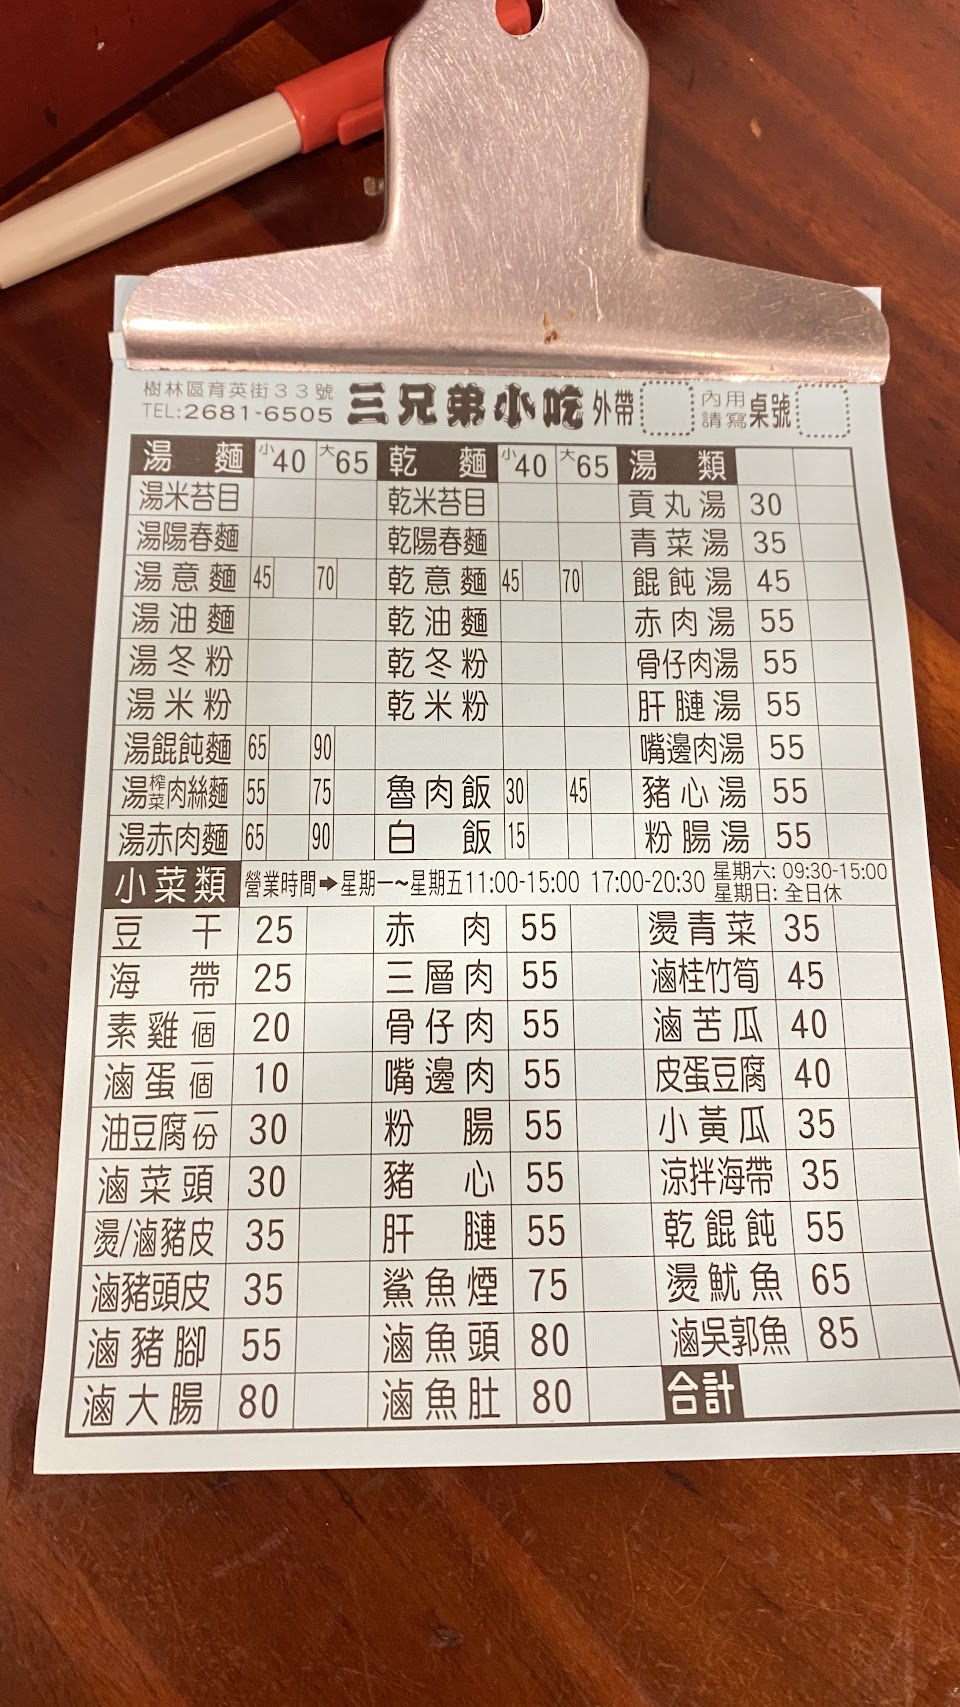 樹林區育英街33號
TEL:2681-6505
三兄弟小吃 外帶 內用請寫桌號
湯麵 小40 大65 乾麵 小40 大65 湯類
湯米苔目 乾米苔目 貢丸湯 30
湯陽春麵 乾陽春麵 青菜湯 35
湯意麵 45 70 乾意麵 45 70 餛飩湯 45
湯油麵 乾油麵 赤肉湯 55
湯冬粉 乾冬粉 骨仔肉湯 55
湯米粉 乾米粉 肝膤湯 55
湯餛飩麵 65 90 嘴邊肉湯 55
湯榨菜肉絲麵 55 75 魯肉飯 30 45 豬心湯 55
湯赤肉麵 65 90 白飯 15 粉腸湯 55
小菜類 營業時間➡星期一~星期五11:00-15:00 17:00-20:30 星期六: 09:30-15:00
星期日: 全日休
豆干 25 赤肉 55 燙青菜 35
海帶 25 三層肉 55 滷桂竹筍 45
素雞一個 20 骨仔肉 55 滷苦瓜 40
滷蛋一個 10 嘴邊肉 55 皮蛋豆腐 40
油豆腐一份 30 粉腸 55 小黃瓜 35
滷菜頭 30 豬心 55 涼拌海帶 35
燙/滷豬皮 35 肝膤 55 乾餛飩 55
滷豬頭皮 35 鯊魚煙 75 燙魷魚 65
滷豬腳 55 滷魚頭 80 滷吳郭魚 85
滷大腸 80 滷魚肚 80 合計